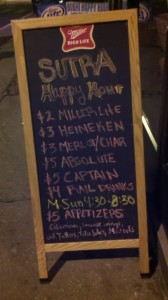 Miller
HIGH LIFE
SUTRA
Happy Hour
$2 MILLER LITE
$3 HEINEKEN
$3 MERLOT/CHAR
$5 ABSOLUTE
$5 CAPTAIN
$4 RAIL DRINKS
M Sun 4:30-8:30
$5 APPETIZERS